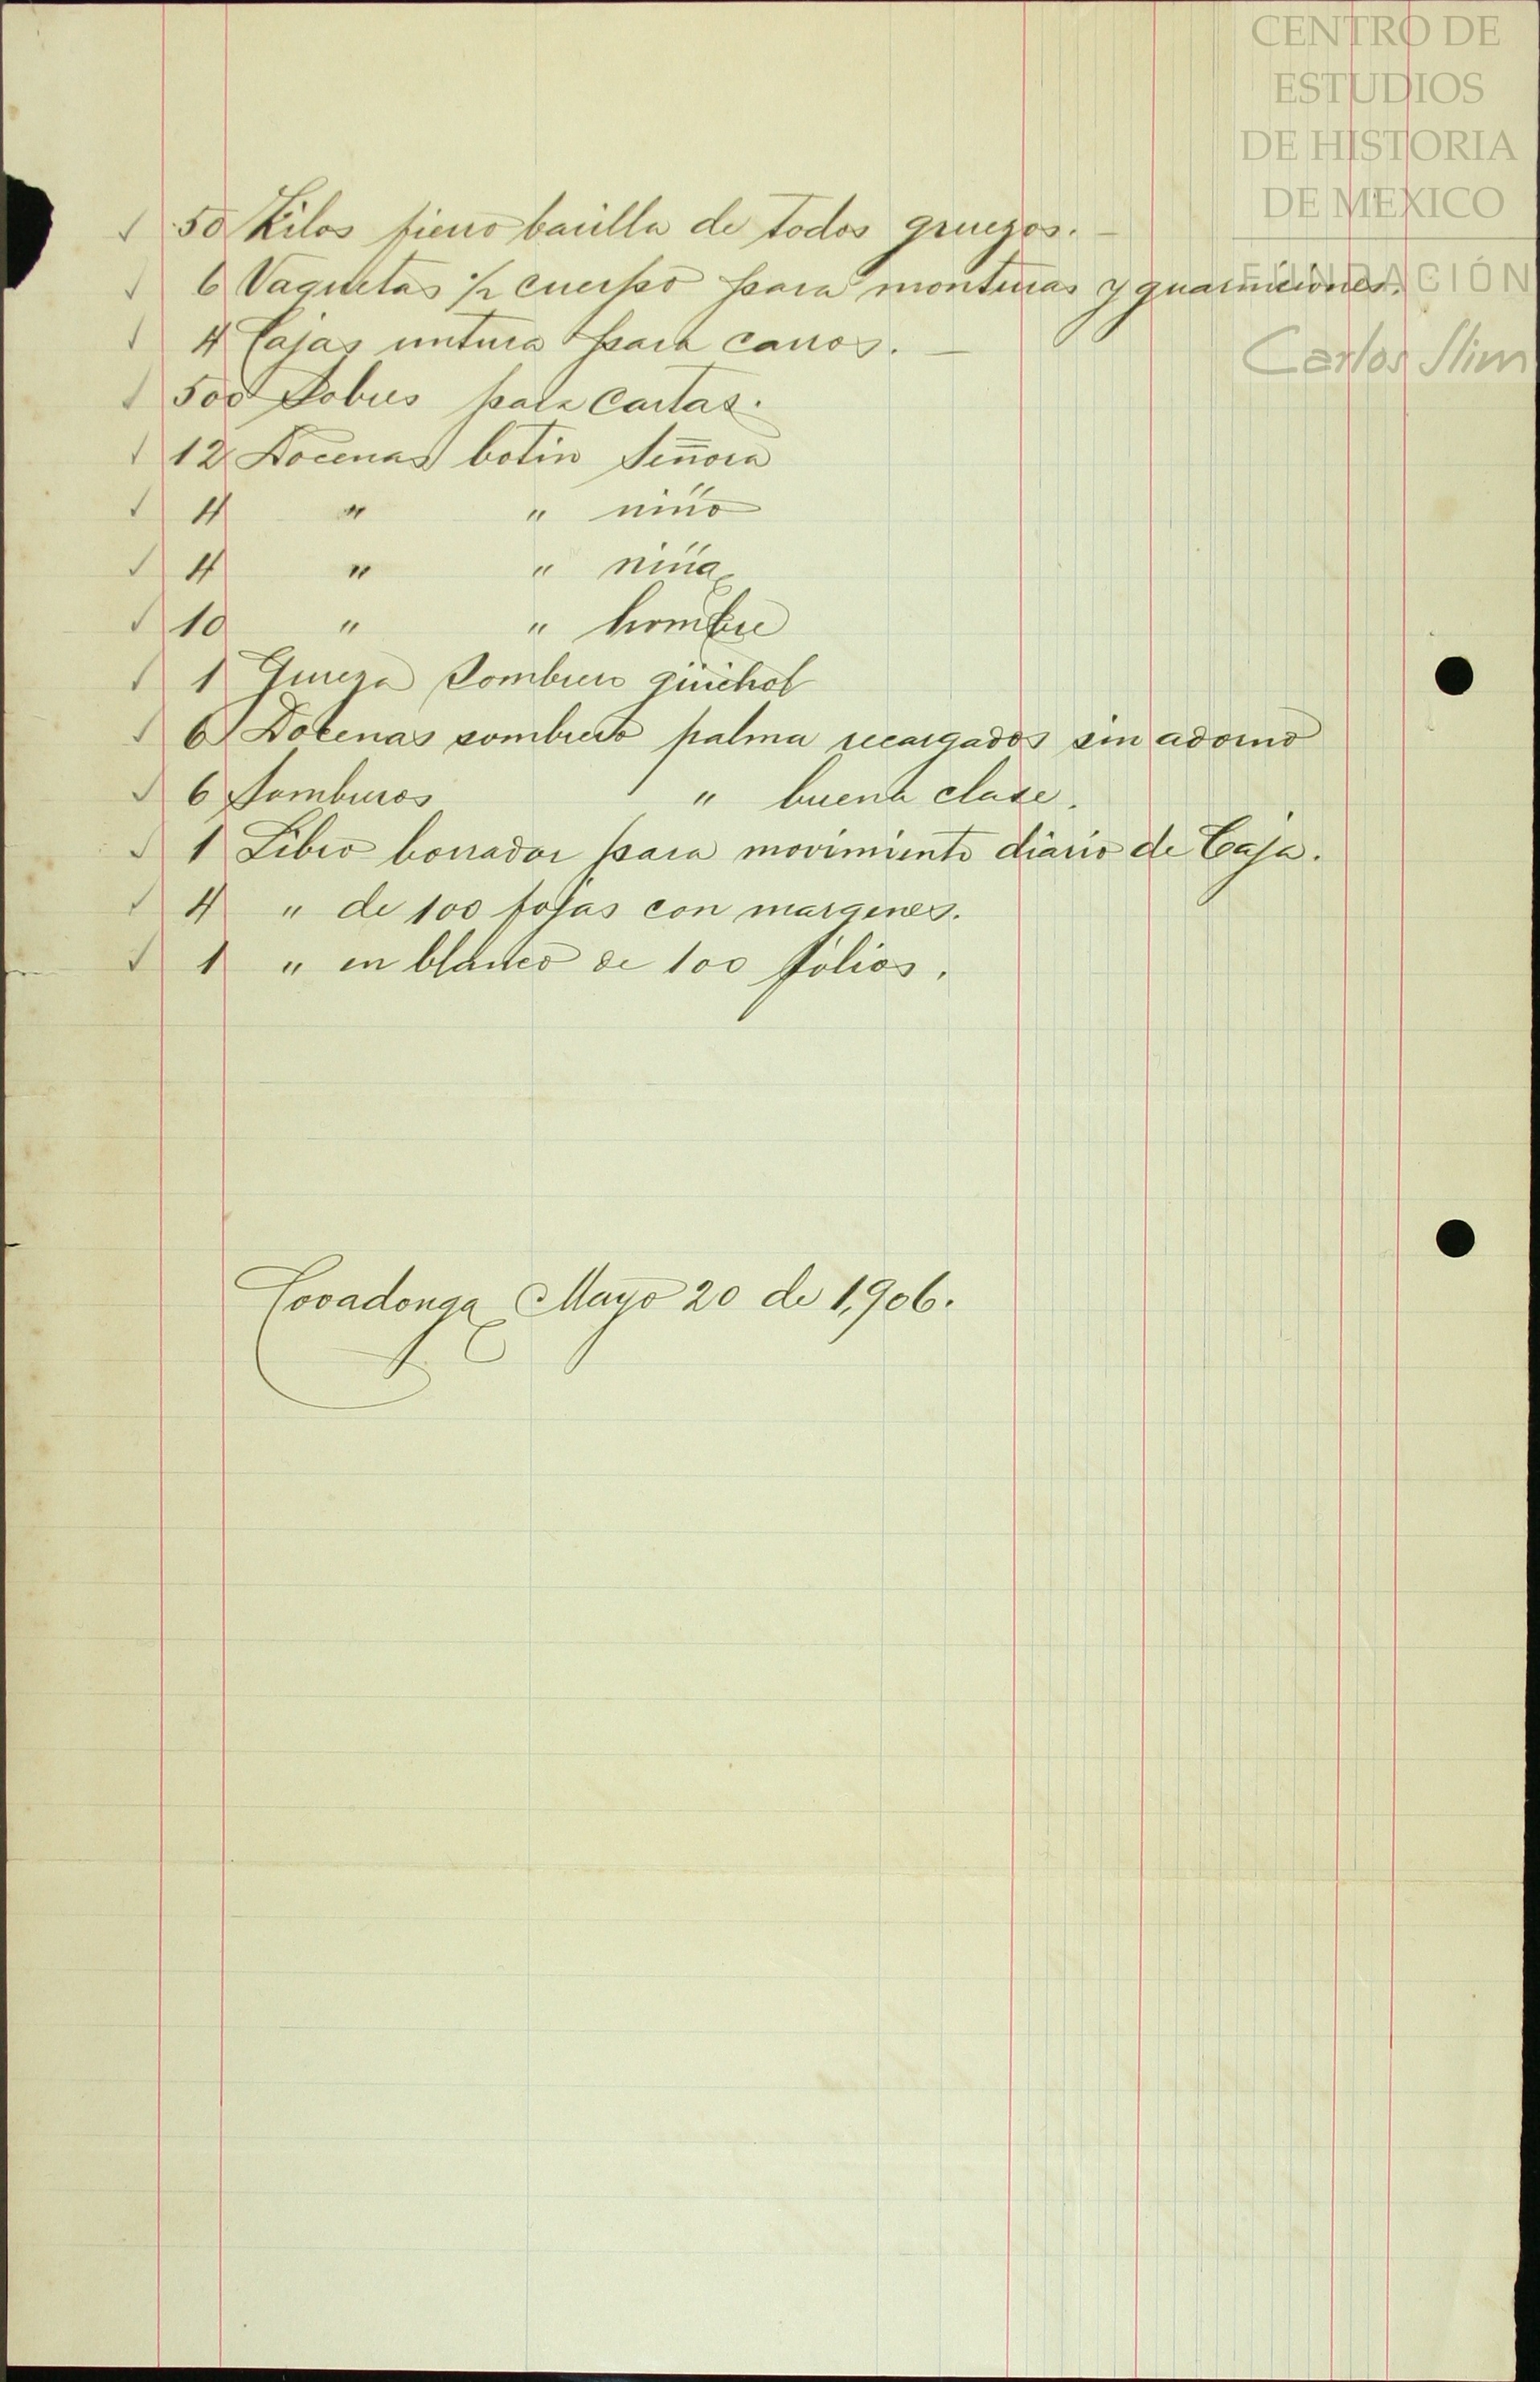 CENTRO DE
ESTUDIOS
DE HISTORIA
DE MEXICO
FUNDACIÓN
Carlos Slim
✓ 50 Kilos fierro barilla de todos gruezos. —
✓ 6 Vaquetas ½ cuerpo para monturas y guarniciones.
✓ 4 Cajas untura para carros. —
✓ 500 Sobres para cartas.
✓ 12 Docenas botin Señora
✓ 4 " " niño
✓ 4 " " niña
✓ 10 " " hombre
✓ 1 Grueza Sombrero güichol
✓ 6 Docenas sombrero palma recargados sin adorno
✓ 6 Sombreros " buena clase.
✓ 1 Libro borrador para movimiento diario de Caja.
✓ 4 " de 100 fojas con margenes.
✓ 1 " en blanco de 100 fólios.
Covadonga Mayo 20 de 1,906.